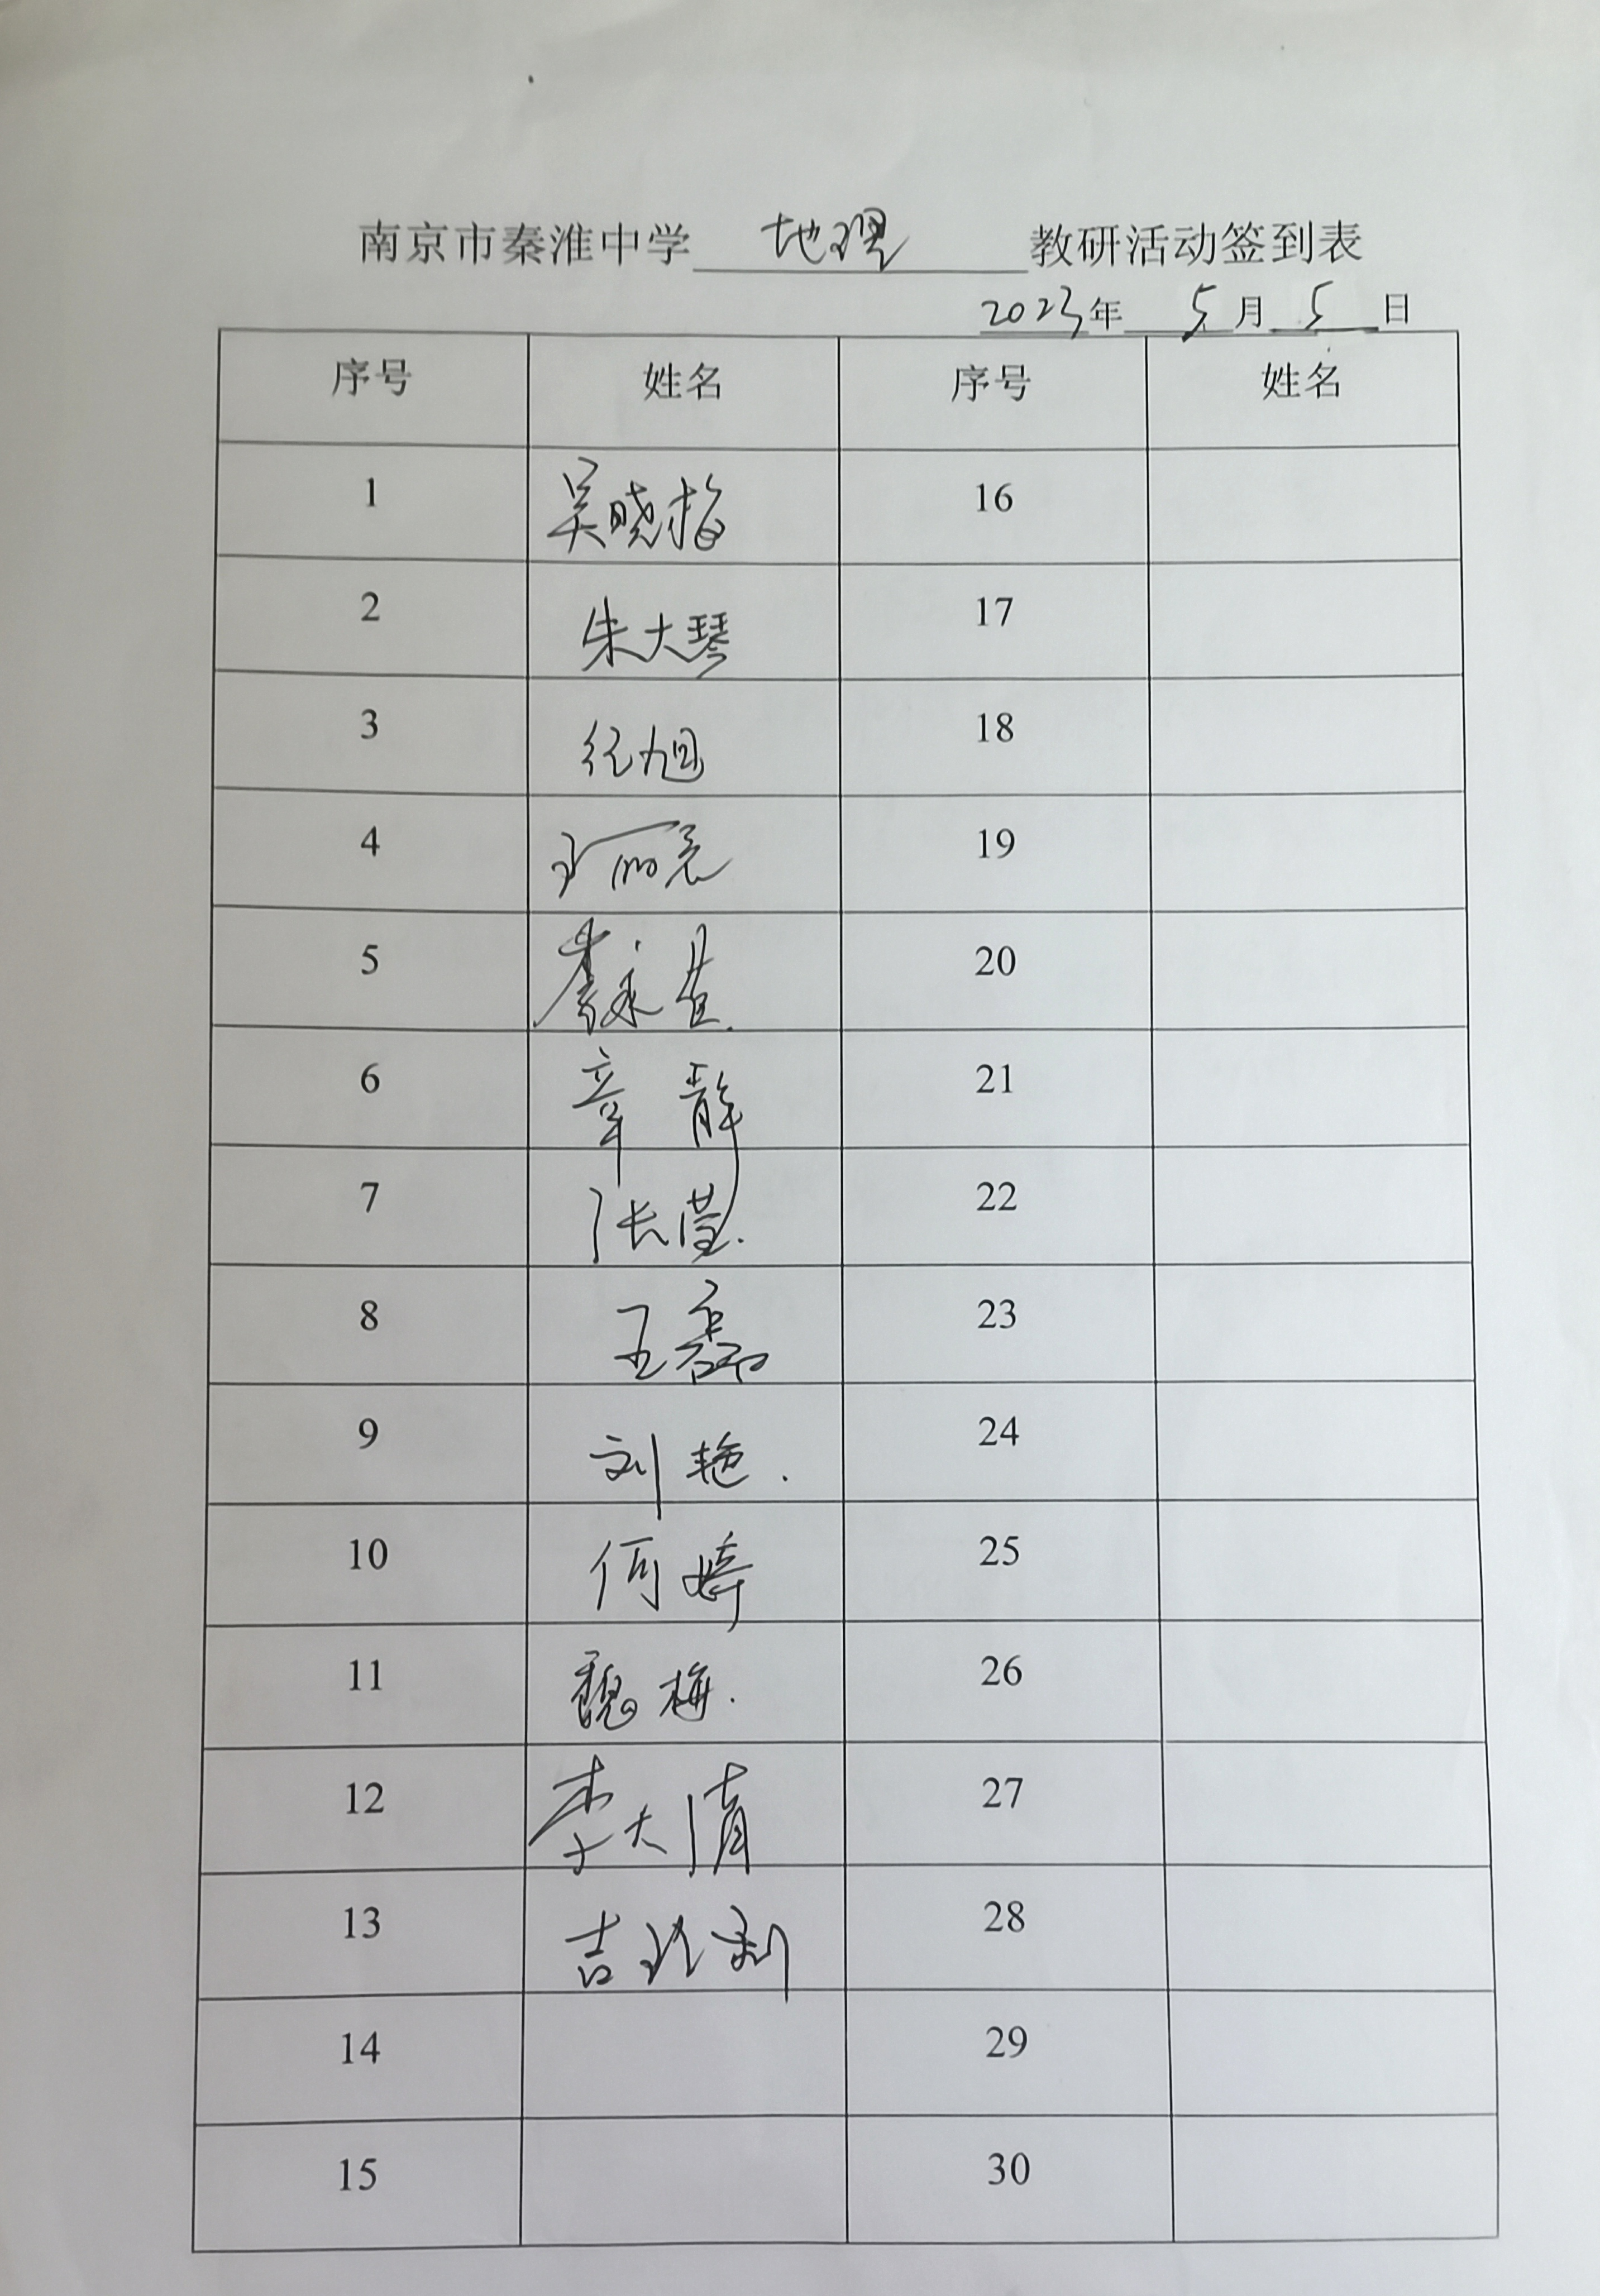 南京市秦淮中学 地理 教研活动签到表
2023年 5月 5日
序号 姓名 序号 姓名
1 吴晓梅 16
2 朱大琴 17
3 旭 18
4 19
5 20
6 章静 21
7 张莹 22
8 王磊 23
9 刘艳 24
10 何婷 25
11 魏梅 26
12 李大清 27
13 吉利 28
14 29
15 30